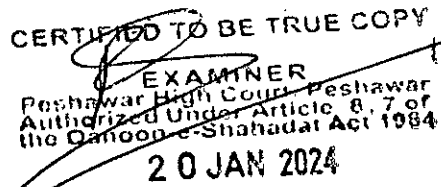 CERTIFIED TO BE TRUE COPY
EXAMINER
Peshawar High Court Peshawar
Authorized Under Article 8, 7 of
the Qanoon-e-Shahadat Act 1984
20 JAN 2024